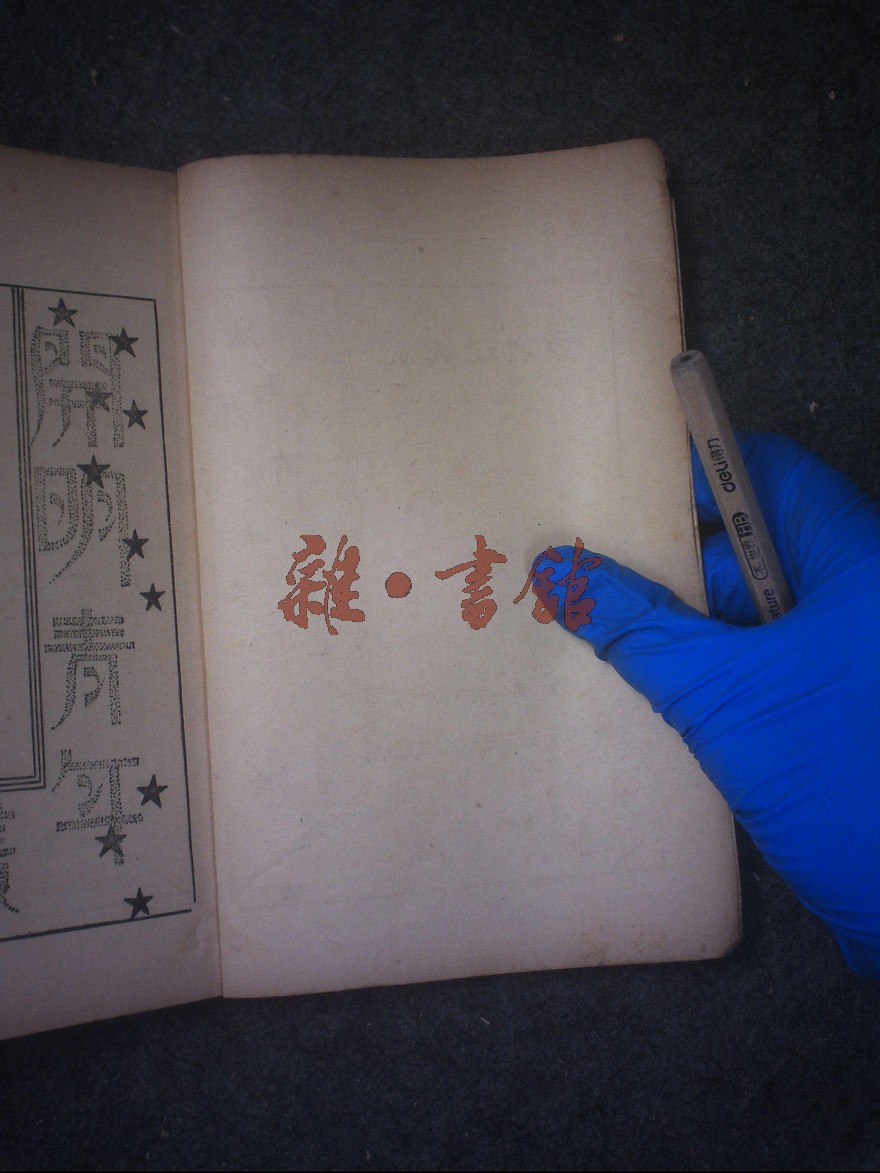 開明青年
雜·書館
deli得力
HB
ature